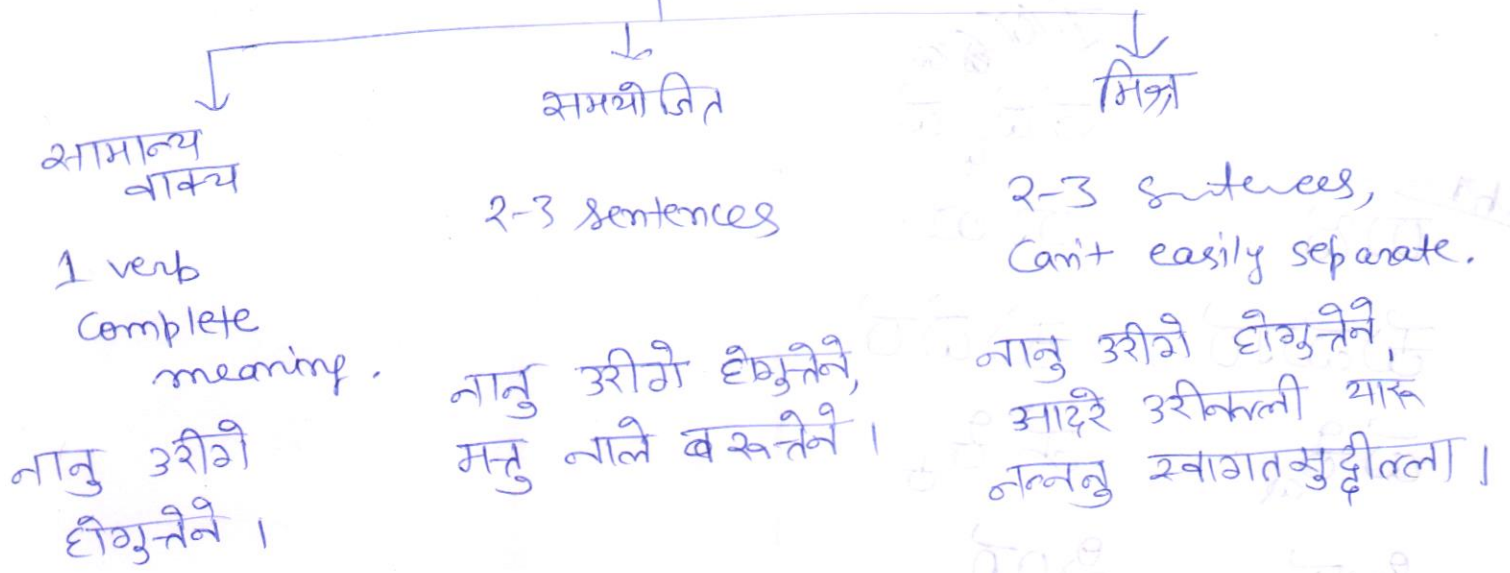 सामान्य
वाक्य
1 verb
Complete
meaning.
नानु उरीगे
होगुत्तेने ।
समयोजित
2-3 sentences
नानु उरीगे होगुत्तेने,
मत्तु नाले बरुत्तेने ।
मिश्र
2-3 sentences,
Can't easily separate.
नानु उरीगे होगुत्तेने,
आदरे उरीनल्ली यारू
नन्ननु स्वागतमुद्दील्ला ।